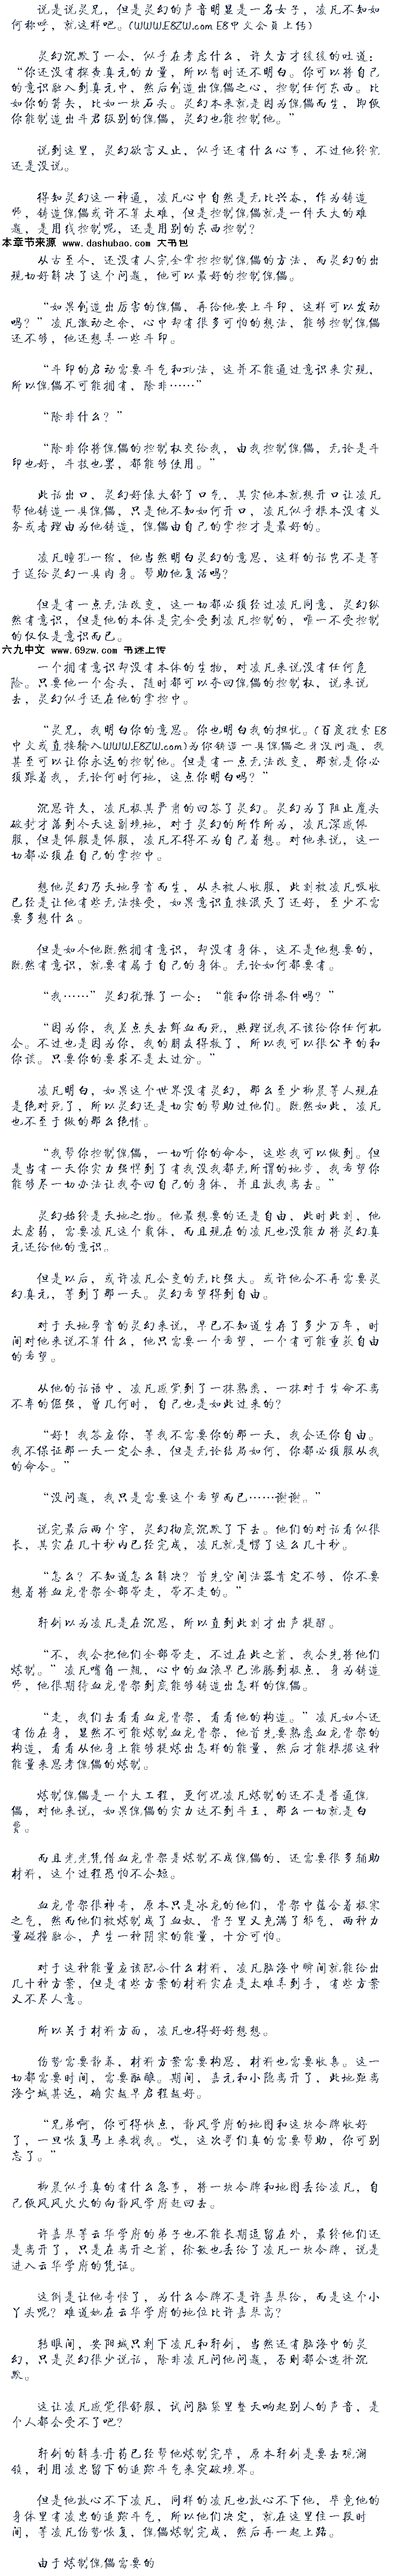 说是说灵兄，但是灵幻的声音明显是一名女子，凌凡不知如
何称呼，就这样吧。(WWW.E8ZW.com E8中文会员上传)
灵幻沉默了一会，似乎在考虑什么，许久方才缓缓的吐道：
“你还没有探查真元的力量，所以暂时还不明白。你可以将自己
的意识融入到真元中，然后创造出傀儡之心，控制任何东西。比
如你的箭矢，比如一块石头。灵幻本来就是因为傀儡而生，即使
你能制造出斗君级别的傀儡，灵幻也能控制他。”
说到这里，灵幻欲言又止，似乎还有什么心事，不过他终究
还是没说。
得知灵幻这一神通，凌凡心中自然是无比兴奋，作为铸造
师，铸造傀儡或许不算太难，但是控制傀儡就是一件天大的难
题，是用线控制呢，还是用别的东西控制？
本章节来源 www.dashubao.com 大书包
从古至今，还没有人完全掌控控制傀儡的方法，而灵幻的出
现切好解决了这个问题，他可以最好的控制傀儡。
“如果创造出厉害的傀儡，再给他安上斗印，这样可以发动
吗？”凌凡激动之余，心中却有很多可怕的想法，能够控制傀儡
还不够，他还想弄一些斗印。
“斗印的启动需要斗气和功法，这并不能通过意识来实现，
所以傀儡不可能拥有，除非……”
“除非什么？”
“除非你将傀儡的控制权交给我，由我控制傀儡，无论是斗
印也好，斗技也罢，都能够使用。”
此话出口，灵幻好像大舒了口气，其实他本就想开口让凌凡
帮他铸造一具傀儡，只是他不知如何开口，凌凡似乎根本没有义
务或者理由为他铸造，傀儡由自己的掌控才是最好的。
凌凡瞳孔一缩，他当然明白灵幻的意思，这样的话岂不是等
于送给灵幻一具肉身。帮助他复活吗？
但是有一点无法改变，这一切都必须经过凌凡同意，灵幻纵
然有意识，但是他的本体是完全受到凌凡控制的，唯一不受控制
的仅仅是意识而已。
六九中文 www.69zw.com 书迷上传
一个拥有意识却没有本体的生物，对凌凡来说没有任何危
险。只要他一个念头，随时都可以夺回傀儡的控制权，说来说
去，灵幻似乎还在他的掌控中。
“灵兄，我明白你的意思。你也明白我的担忧。(百度搜索 E8
中文或直接输入WWW.E8ZW.com)为你铸造一具傀儡之身没问题，我
甚至可以让你永远的控制他。但是有一点无法改变，那就是你必
须跟着我，无论何时何地，这点你明白吗？”
沉思许久，凌凡极其严肃的回答了灵幻。灵幻为了阻止魔头
破封才落到今天这副境地，对于灵幻的所作所为，凌凡深感佩
服，但是佩服是佩服，凌凡不得不为自己着想。对他来说，这一
切都必须在自己的掌控中。
想他灵幻乃天地孕育而生，从未被人收服，此刻被凌凡吸收
已经是让他有些无法接受，如果意识直接泯灭了还好，至少不需
要多想什么。
但是如今他既然拥有意识，却没有身体，这不是他想要的，
既然有意识，就要有属于自己的身体。无论如何都要有。
“我……”灵幻犹豫了一会：“能和你讲条件吗？”
“因为你，我差点失去鲜血而死，照理说我不该给你任何机
会。不过也是因为你，我的朋友得救了，所以我可以很公平的和
你谈。只要你的要求不是太过分。”
凌凡明白，如果这个世界没有灵幻，那么至少柳晨等人现在
是绝对死了，所以灵幻还是切实的帮助过他们。既然如此，凌凡
也不至于做的那么绝情。
“我帮你控制傀儡，一切听你的命令，这些我可以做到。但
是当有一天你实力强悍到了有我没我都无所谓的地步，我希望你
能够尽一切办法让我夺回自己的身体，并且放我离去。”
灵幻始终是天地之物。他最想要的还是自由，此时此刻，他
太虚弱，需要凌凡这个载体，而且现在的凌凡也没能力将灵幻真
元还给他的意识。
但是以后，或许凌凡会变的无比强大。或许他会不再需要灵
幻真元，等到了那一天。灵幻希望得到自由。
对于天地孕育的灵幻来说，早已不知道生存了多少万年，时
间对他来说不算什么，他只需要一个希望，一个有可能重获自由
的希望。
从他的话语中，凌凡感觉到了一抹熟悉，一抹对于生命不离
不弃的倔强，曾几何时，自己也是如此过来的？
“好！我答应你，等我不需要你的那一天，我会还你自由。
我不保证那一天一定会来，但是无论结局如何，你都必须服从我
的命令。”
“没问题，我只是需要这个希望而已……谢谢。”
说完最后两个字，灵幻彻底沉默了下去。他们的对话看似很
长，其实在几十秒内已经完成，凌凡就是愣了这么几十秒。
“怎么？不知道怎么解决？首先空间法器肯定不够，你不要
想着将血龙骨架全部带走，带不走的。”
轩剑以为凌凡是在沉思，所以直到此刻才出声提醒。
“不，我会把他们全部带走，不过在此之前，我会先将他们
炼制。”凌凡嘴角一翘，心中的血液早已沸腾到极点，身为铸造
师，他很期待血龙骨架到底能够铸造出怎样的傀儡。
“走，我们去看看血龙骨架，看看他的构造。”凌凡如今还
有伤在身，显然不可能炼制血龙骨架，他首先要熟悉血龙骨架的
构造，看看从他身上能够提炼出怎样的能量，然后才能根据这种
能量来思考傀儡的炼制。
炼制傀儡是一个大工程，更何况凌凡炼制的还不是普通傀
儡，对他来说，如果傀儡的实力达不到斗王，那么一切就是白
费。
而且光光凭借血龙骨架是炼制不成傀儡的，还需要很多辅助
材料，这个过程恐怕不会短。
血龙骨架很神奇，原本只是冰龙的他们，骨架中蕴含着极寒
之气，然而他们被炼制成了血奴，骨子里又充满了邪气，两种力
量碰撞融合，产生一种阴寒的能量，十分可怕。
对于这种能量应该配合什么材料，凌凡脑海中瞬间就能给出
几十种方案，但是有些方案的材料实在是太难弄到手，有些方案
又不尽人意。
所以关于材料方面，凌凡也得好好想想。
伤势需要静养，材料方案需要构思，材料也需要收集。这一
切都需要时间，需要酝酿。期间，喜元和小隐离开了，此地距离
海宁城甚远，确实越早启程越好。
“兄弟啊，你可得快点，静风学府的地图和这块令牌收好
了，一旦恢复马上来找我。哎，这次哥们真的需要帮助，你可别
忘了。”
柳晨似乎真的有什么急事，将一块令牌和地图丢给凌凡，自
己便风风火火的向静风学府赶回去。
许嘉琹等云华学府的弟子也不能长期逗留在外，最终他们还
是离开了，只是在离开之前，徐敏也丢给了凌凡一块令牌，说是
进入云华学府的凭证。
这倒是让他奇怪了，为什么令牌不是许嘉琹给，而是这个小
丫头呢？难道她在云华学府的地位比许嘉琹高？
转眼间，安阳城只剩下凌凡和轩剑，当然还有脑海中的灵
幻，只是灵幻很少说话，除非凌凡问他问题，否则都会选择沉
默。
这让凌凡感觉很舒服，试问脑袋里整天响起别人的声音，是
个人都会受不了吧？
轩剑的解毒丹药已经帮他炼制完毕，原本轩剑是要去观澜
镇，利用凌忠留下的追踪斗气来突破境界。
但是他放心不下凌凡，同样的凌凡也放心不下他，毕竟他的
身体里有凌忠的追踪斗气，所以他们决定，就在这里住一段时
间，等凌凡伤势恢复，傀儡炼制完成，然后再一起上路。
由于炼制傀儡需要的